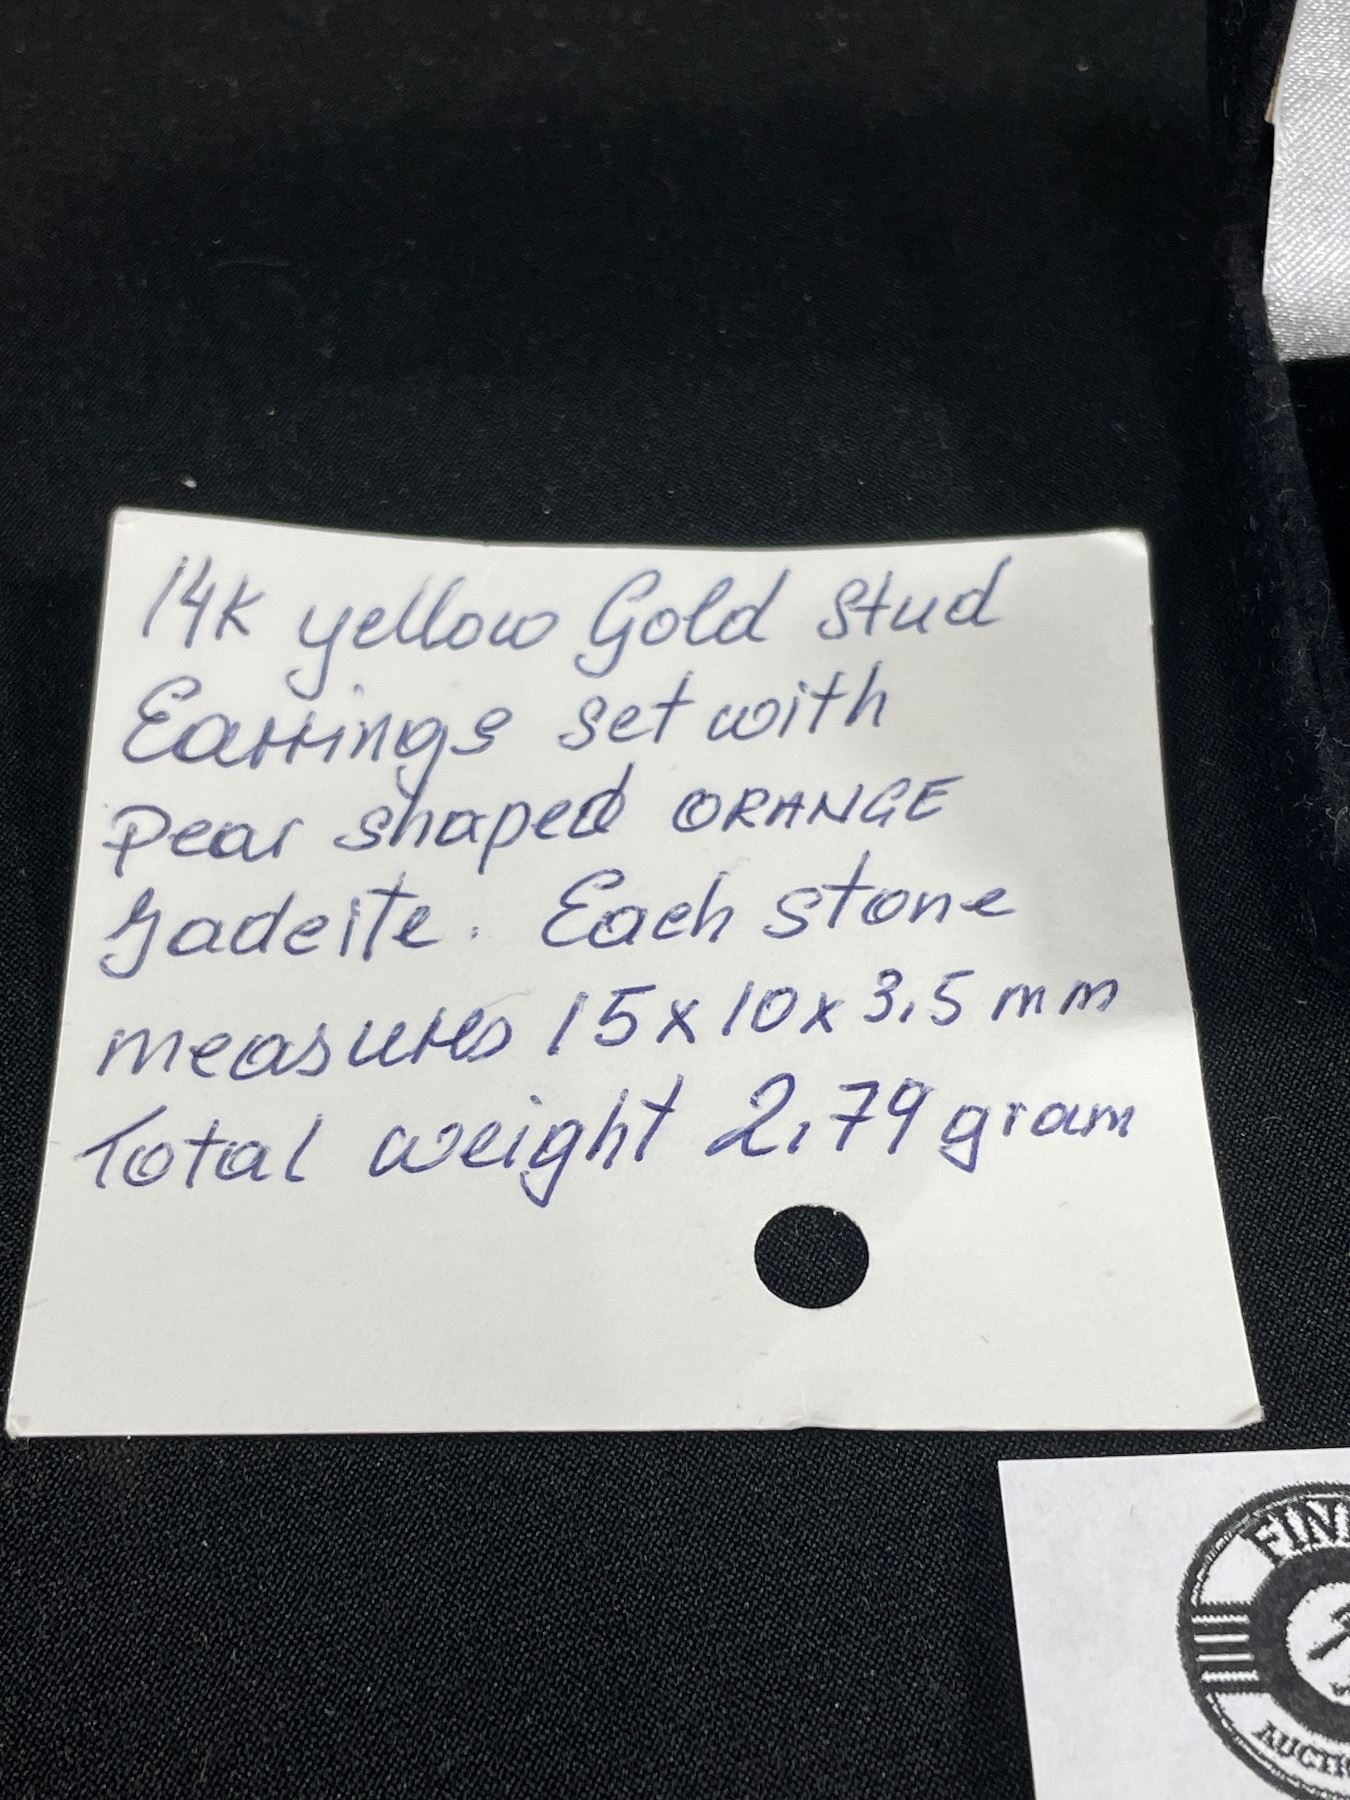 14K yellow Gold Stud
Earrings set with
Pear shaped ORANGE
Jadeite. Each stone
measures 15x10x3.5 mm
Total weight 2.79 gram
FIN
AUCTI